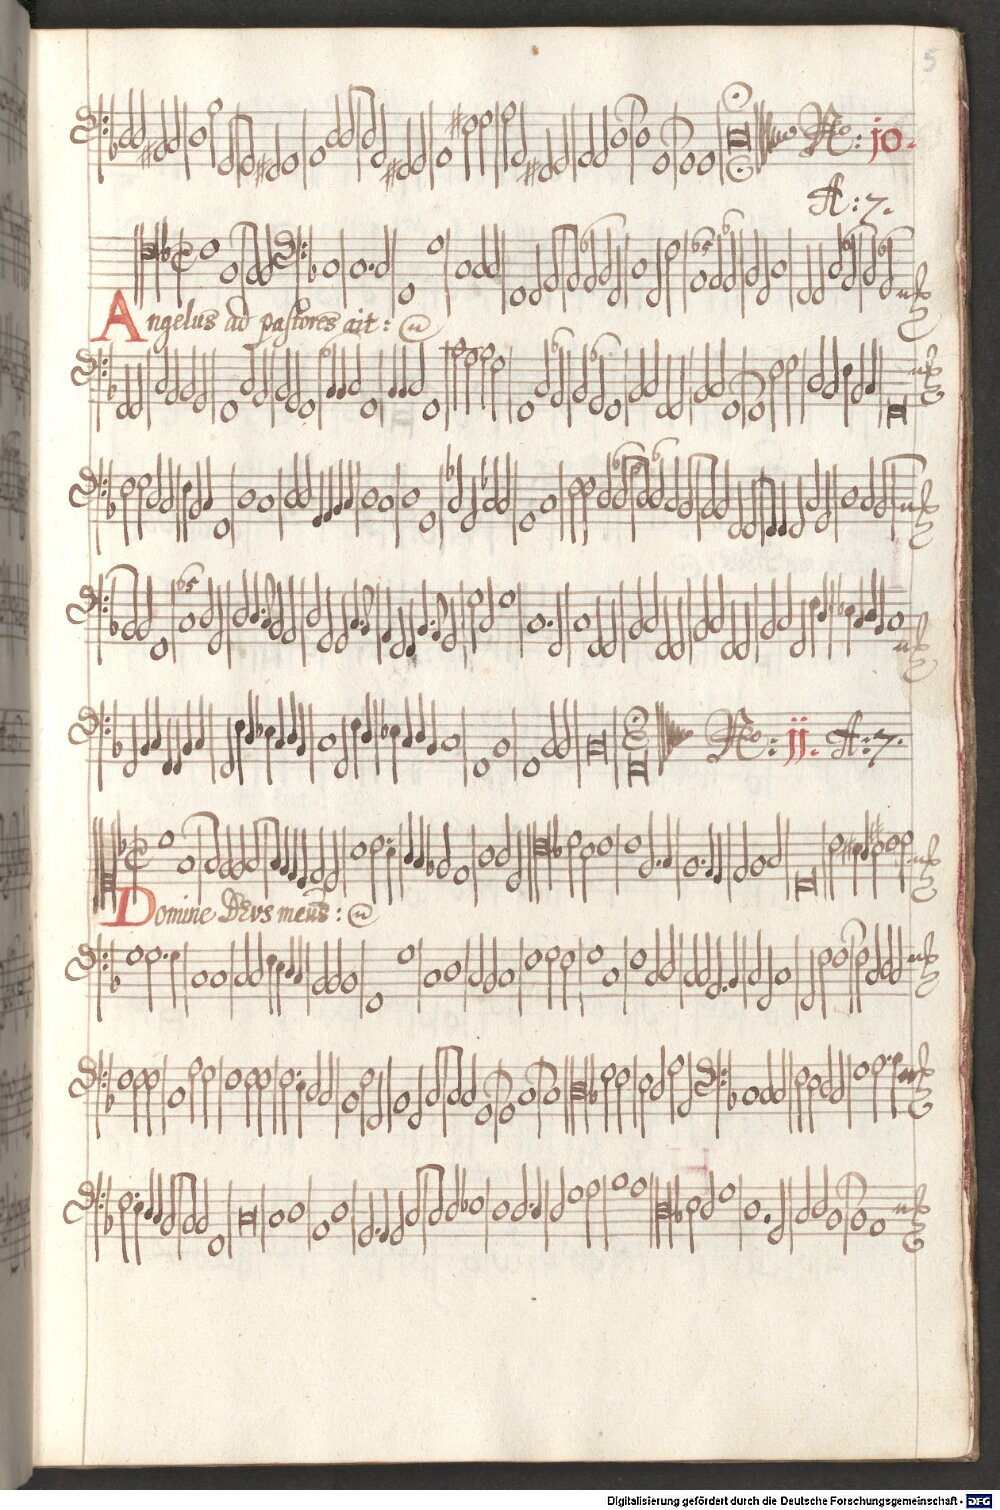 5
No: jo.
A: 7.
Angelus ad pastores ait: ij
No: jj. A: 7.
Domine DEVS meus: ij
Digitalisierung gefördert durch die Deutsche Forschungsgemeinschaft - DFG